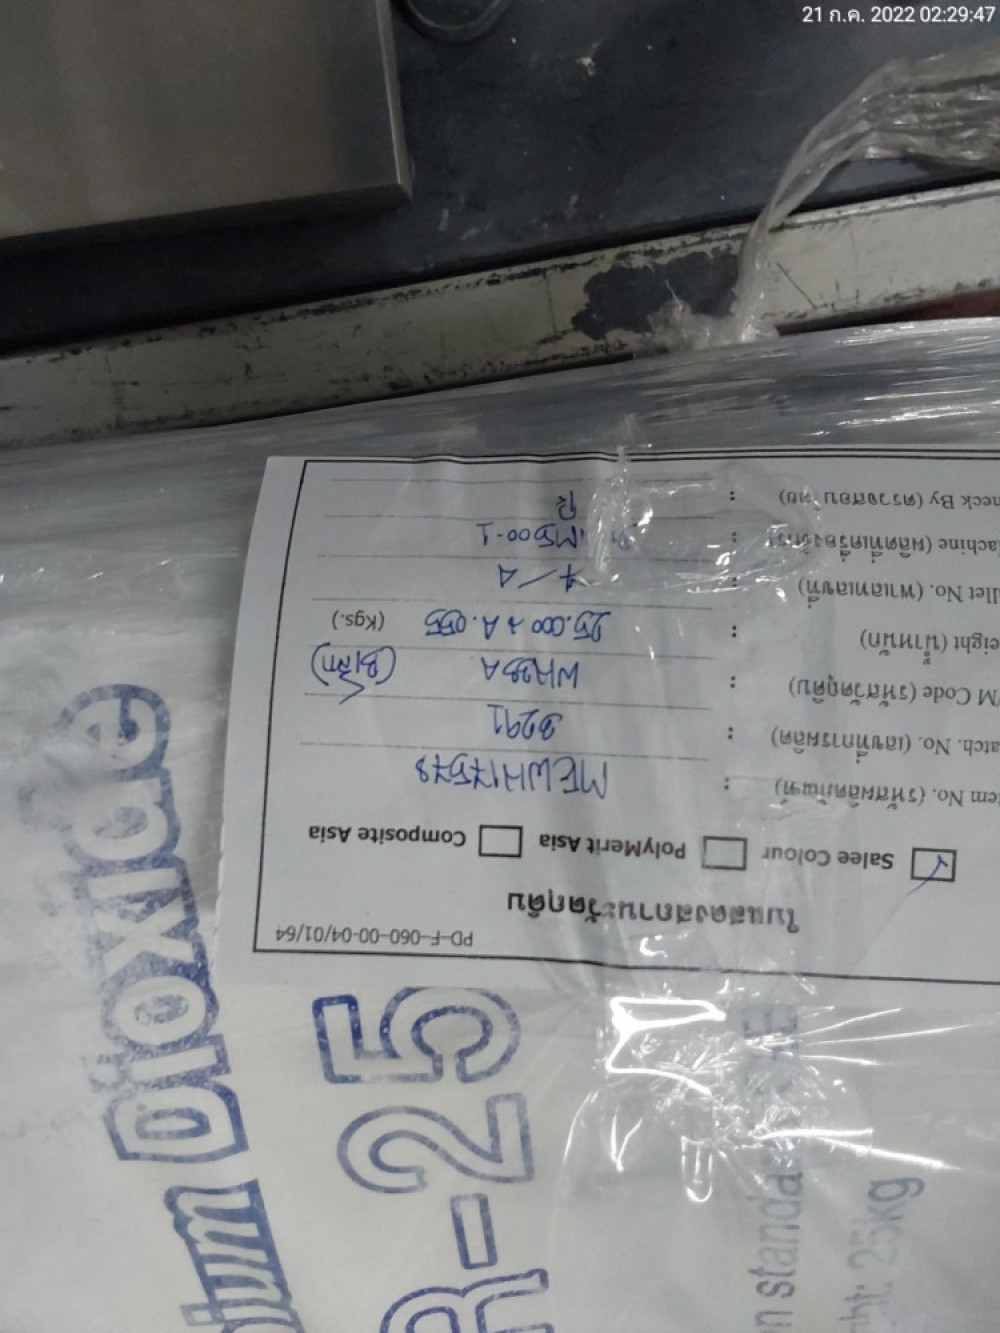 21 ก.ค. 2022 02:29:47
PD-F-060-00-04/01/64
ใบแสดงสถานะวัตถุดิบ
Salee Colour PolyMerit Asia Composite Asia
em No. (รหัสผลิตภัณฑ์) : MEWH17578
atch. No. (เลขการผลิต) : 3291
M Code (รหัสวัตถุดิบ) : WH28A
eight (น้ำหนัก) : 25.000 (Kgs.)
llet No. (พาเลทเลขที่) : 4/A
achine (ผลิตที่เครื่องจักร) : M500-1
eck By (ตรวจสอบโดย) :
ium Dioxide
R-25
n standa
ht: 25kg